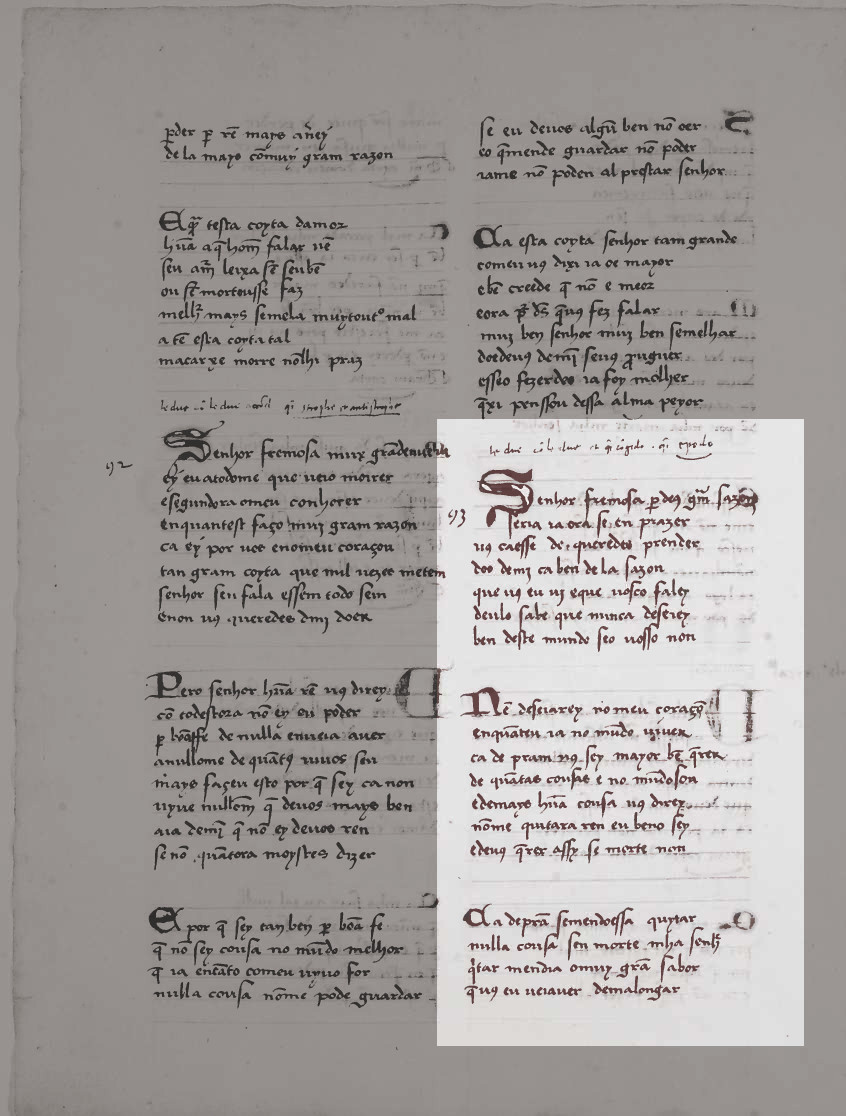 pder p rē mays aney
de la mays cōmuy gram razon
E q̄r testa coyta damor
hūa a q̄ hom̄ falar uē
seu am̄ leixa sē seu bē
ou sē mortousse faz
mellr̄ mays semela muytoutº mal
a tē esta coyta tal
macar xe morre nōlhi praz
92
Senhor fremosa muy grādenuēhia
ey eu atodome que ueio moirer
esegundora omeu conhocer
enquantest faço muy gram razon
ca ey por uos enomeu coraçon
tan gram coyta que mil uezes metem
senhor seu fala essem todo sem
enon uȝ queredes dmj doer
Pero senhor hūa rē uȝ direy
cō todestora nō ey eu poder
p bōaffe de nulla enueia auer
anullome de quātȝ uiuos seu
mays façeu esto por q̄ sey ca non
uyue nullom̄ q̄ deuos mays ben
aia demj̄ q̄ nō ey deuos ren
se nō quātora moyszes dizer
E por q̄ sey tan ben p bōa fe
q̄ nō sey cousa no mūdo melhor
q̄ ia enēato comeu uyuo for
nulla cousa nōme pode guardar
se eu deuos algū ben nō oer
eo q̄mende guardar nō poder
iame nō poden al prestar senhor
Ca esta coyta senhor tam grande
comeu uȝ dixi ia oe mayor
ebē creede q̄ nō e meor
eora pr̄ ds̄ q̄uȝ fez falar
mui ben senhor mui ben semelhar
doedeuȝ demj̄ seuȝ prouguer
esseo fezerdes ia foy molher
q̄xi penssou dessa alma peyor
93
Senhor fremosa p deȝ grā sazon
seria ia ora se en prazer
uȝ caesse de queredes prender
doo demj ca ben de la sazon
que uȝ eu uj eque uosco faley
deulo sabe que nunca deseiey
ben deste mundo seo uosso non
Nē deseiarey no meu coraçō
enquāteu ia no mūdo uiuer
ca de pram uȝ sey mayor bē q̄rer
de quātas cousas e no mūdo son
edemays hūa cousa uȝ direy
nōme quitara ren eu beno sey
edeuȝ q̄rer assy se morte non
Ca deprā semendoessa quytar
nulla cousa sen morte mha senhr̄
q̄tar mendia omuy grā sabor
q̄uȝ eu ueiauer demalongar